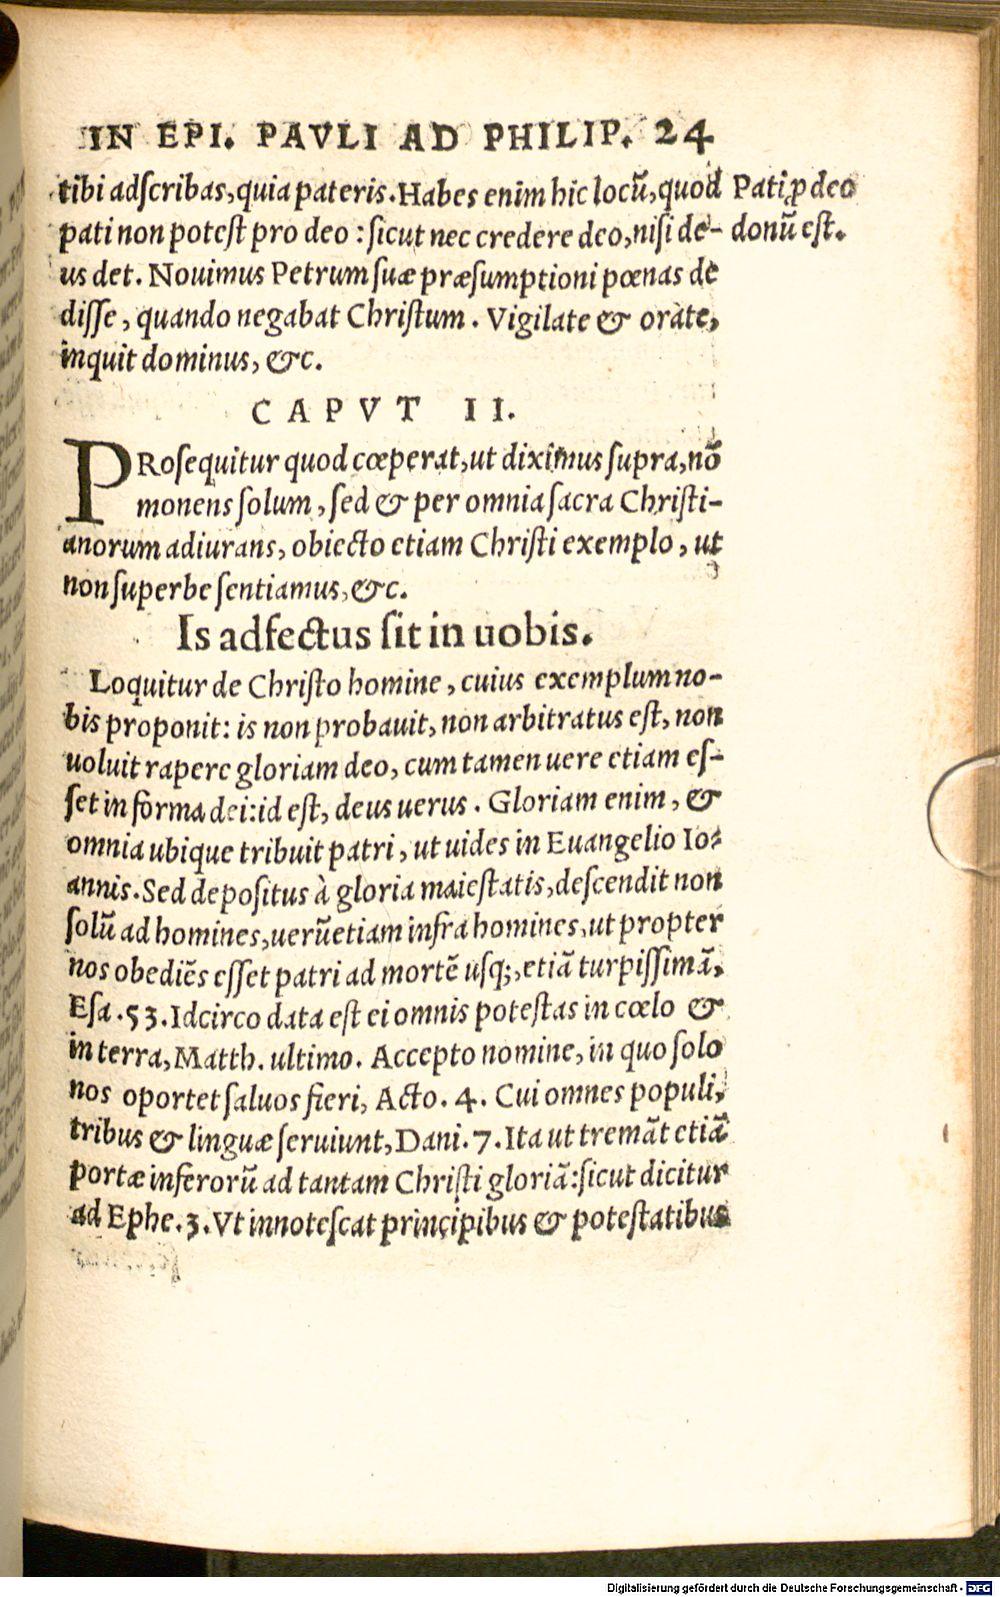 IN EPI. PAVLI AD PHILIP. 24
tibi adſcribas, quia pateris. Habes enim hic locũ, quod
pati non poteſt pro deo : ſicut nec credere deo, niſi de-
us det. Nouimus Petrum ſuæ præſumptioni pœnas de
diſſe, quando negabat Chriſtum. Vigilate & orate,
inquit dominus, &c.
Pati ꝓ deo
donũ eſt.
CAPVT II.
PRoſequitur quod cœperat, ut diximus ſupra, nõ
monens ſolum, ſed & per omnia ſacra Chriſti-
anorum adiurans, obiecto etiam Chriſti exemplo, ut
non ſuperbe ſentiamus, &c.
Is adfectus ſit in uobis.
Loquitur de Chriſto homine, cuius exemplum no-
bis proponit: is non probauit, non arbitratus eſt, non
uoluit rapere gloriam deo, cum tamen uere etiam eſ-
ſet in forma dei: id eſt, deus uerus. Gloriam enim, &
omnia ubique tribuit patri, ut uides in Euangelio Io⸗
annis. Sed depoſitus à gloria maieſtatis, deſcendit non
ſolũ ad homines, uerũetiam infra homines, ut propter
nos obediẽs eſſet patri ad mortẽ uſq;, etiã turpiſſimã,
Eſa. 53. Idcirco data eſt ei omnis poteſtas in cœlo &
in terra, Matth. ultimo. Accepto nomine, in quo ſolo
nos oportet ſaluos fieri, Acto. 4. Cui omnes populi,
tribus & linguæ ſeruiunt, Dani. 7. Ita ut tremãt etiã
portæ inferorũ ad tantam Chriſti gloriã: ſicut dicitur
ad Ephe. 3. Vt innoteſcat principibus & poteſtatibus
Digitalisierung gefördert durch die Deutsche Forschungsgemeinschaft - DFG